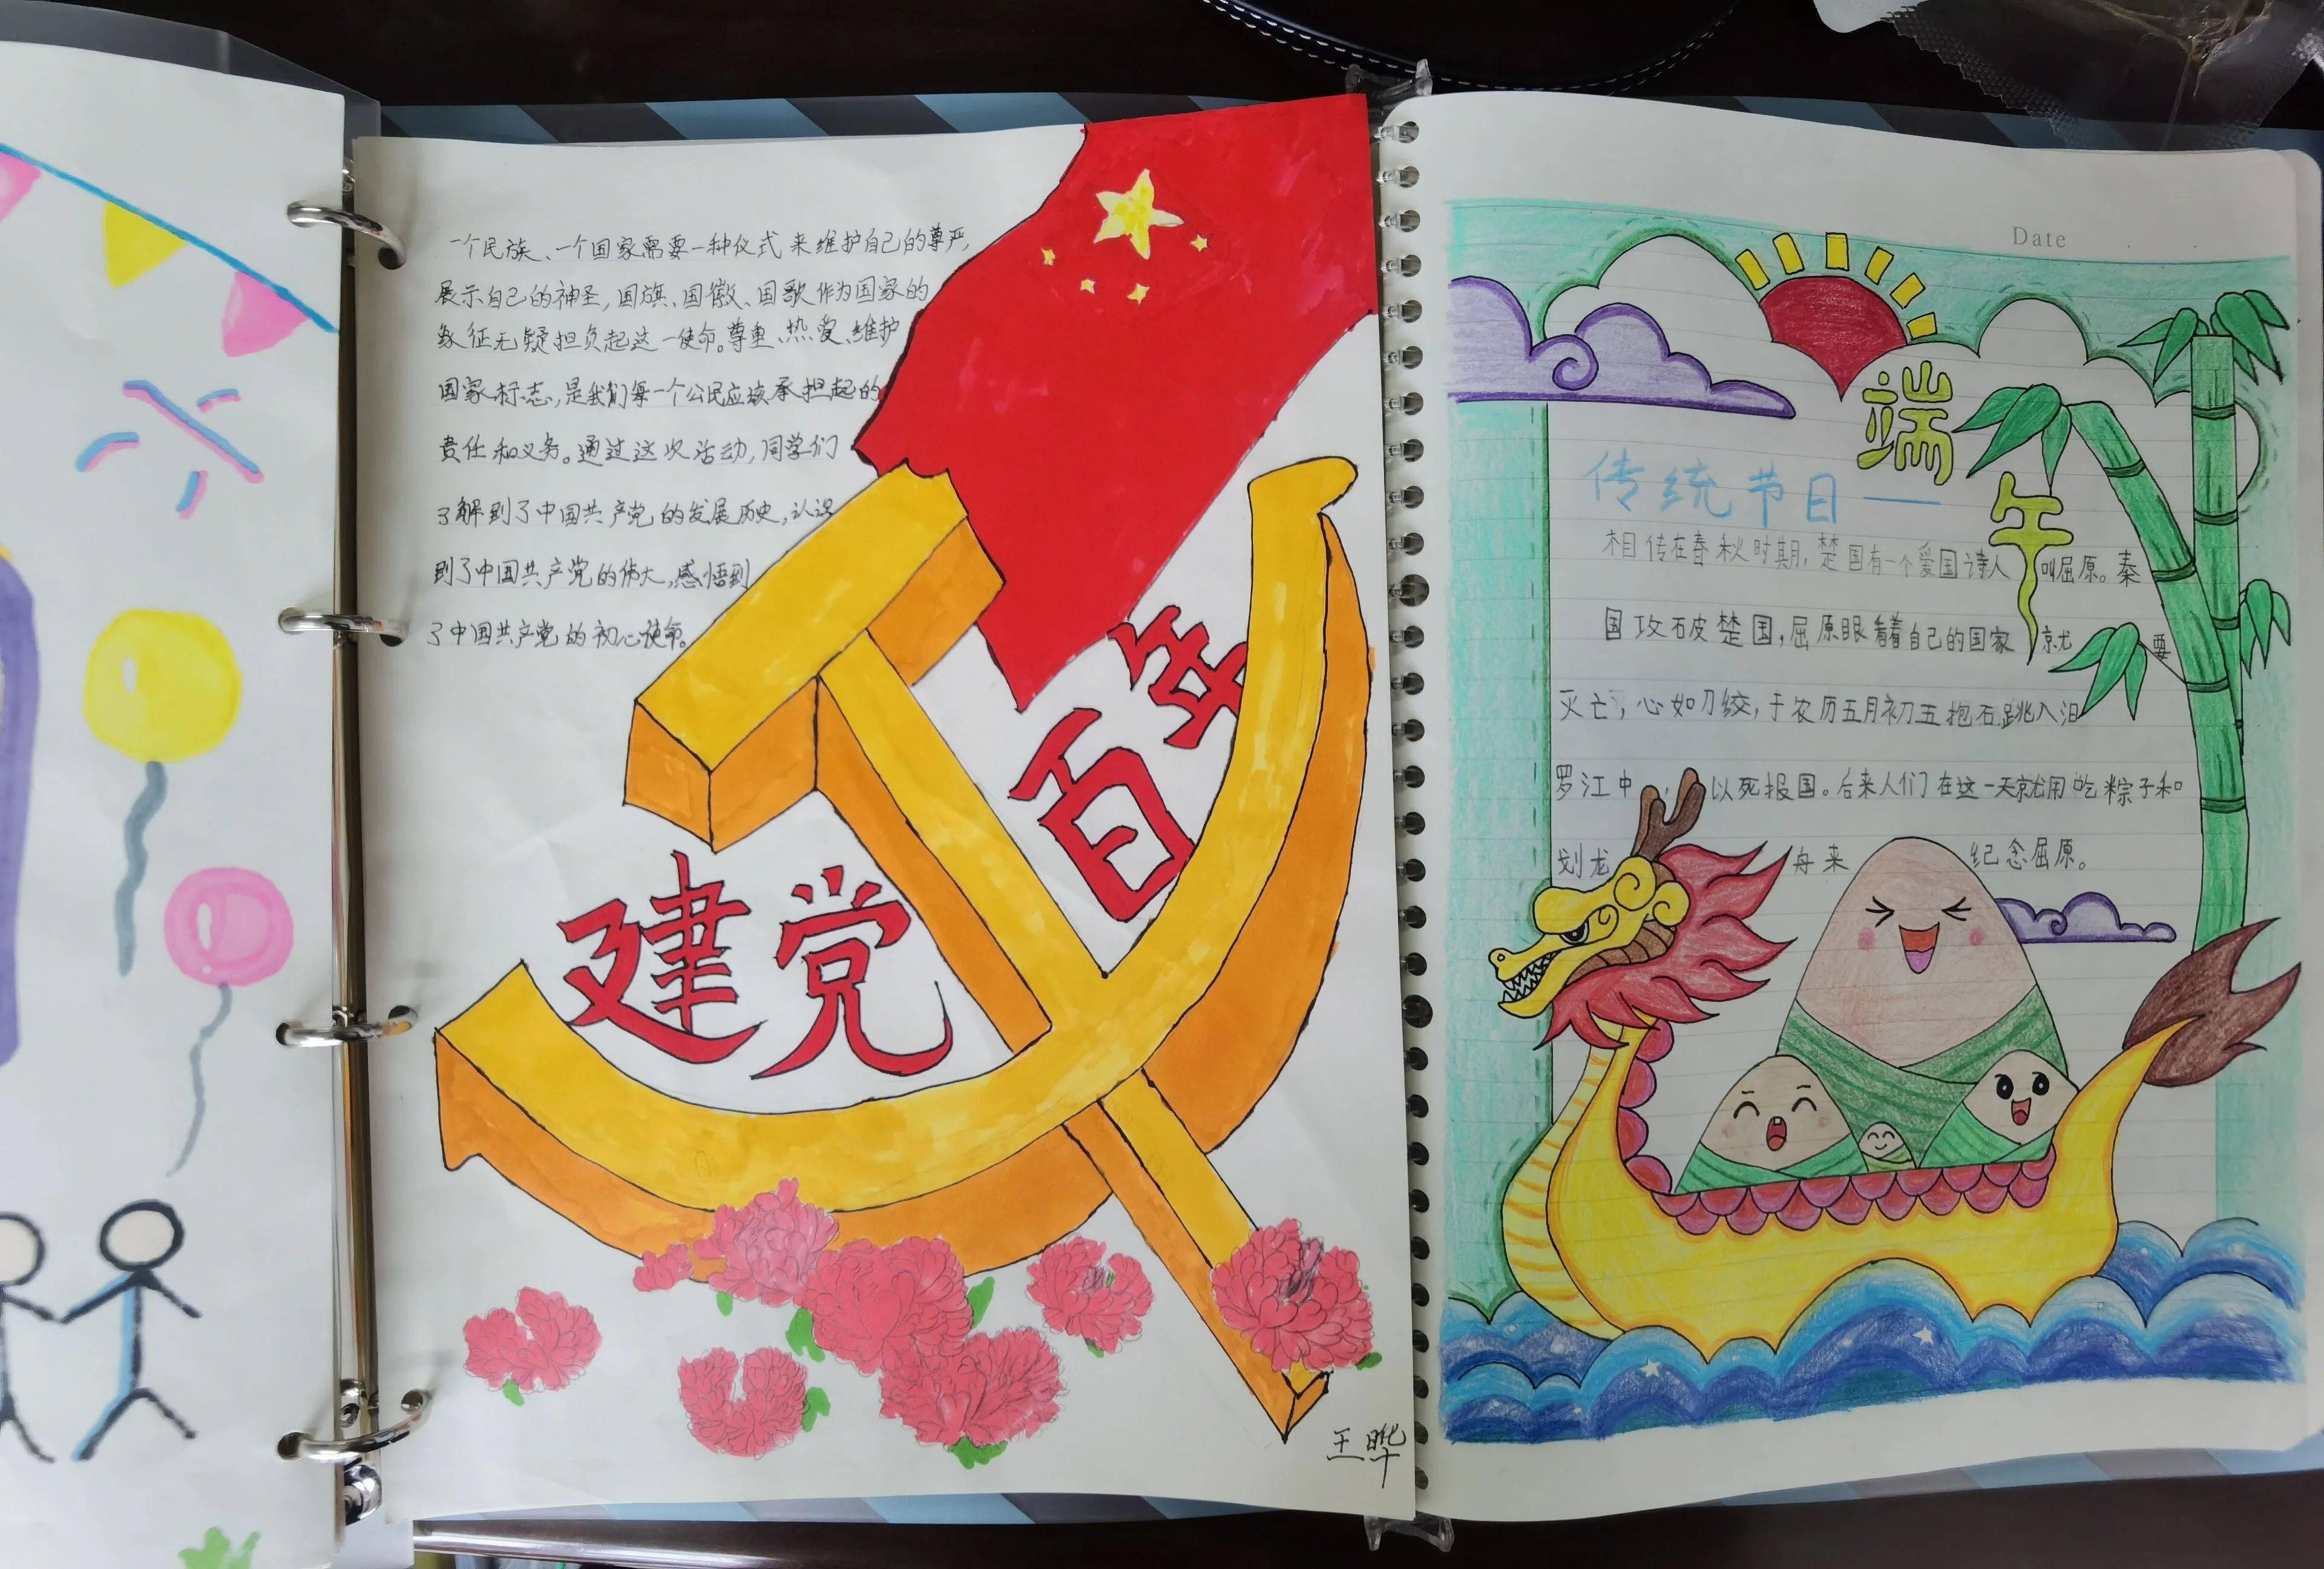 一个民族、一个国家需要一种仪式来维护自己的尊严,
展示自己的神圣,国旗、国徽、国歌作为国家的
象征无疑担负起这一使命。尊重、热爱、维护
国家标志,是我们每一个公民应该承担起的
责任和义务。通过这次活动,同学们
了解到了中国共产党的发展历史,认识
到了中国共产党的伟大,感悟到
了中国共产党的初心使命。
百年
建党
王晔
Date
端午
传统节日——
相传在春秋时期,楚国有一个爱国诗人叫屈原。秦
国攻破楚国,屈原眼看着自己的国家就要
灭亡,心如刀绞,于农历五月初五抱石跳入汨
罗江中,以死报国。后来人们在这一天就用吃粽子和
划龙舟来纪念屈原。